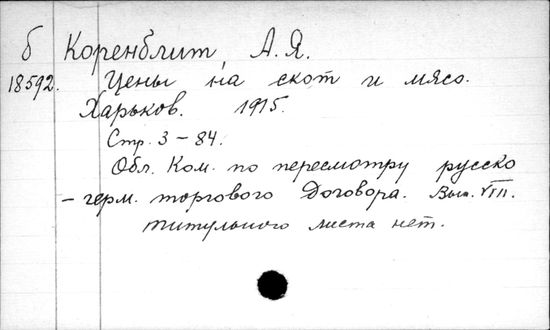 б Коренблит А. Я.
18592. Цены на скот и мясо.
Харьков. 1915.
Стр. 3 – 84.
Обл. Ком. по пересмотру русско
– герм. торгового Договора. Вып. VIII.
титульного листа нет.